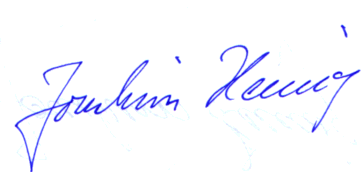 Joachim Hennig